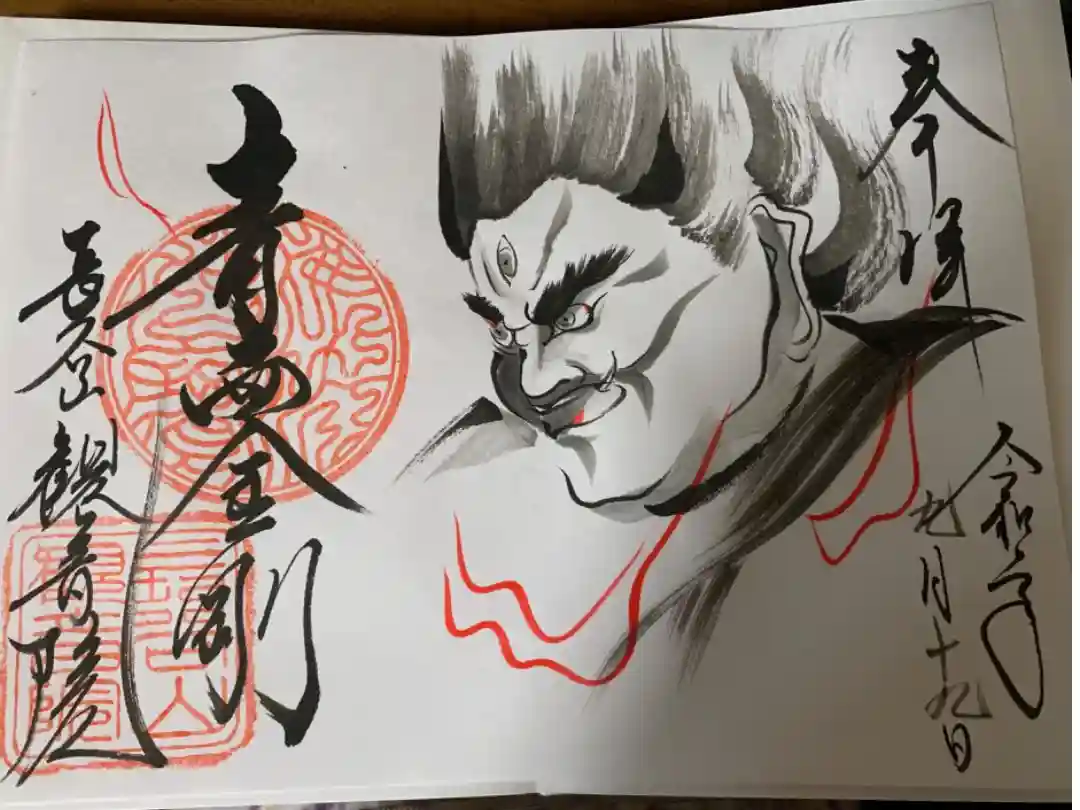 奉拝
令和元年
九月十九日
青面金剛
長谷山
観音院